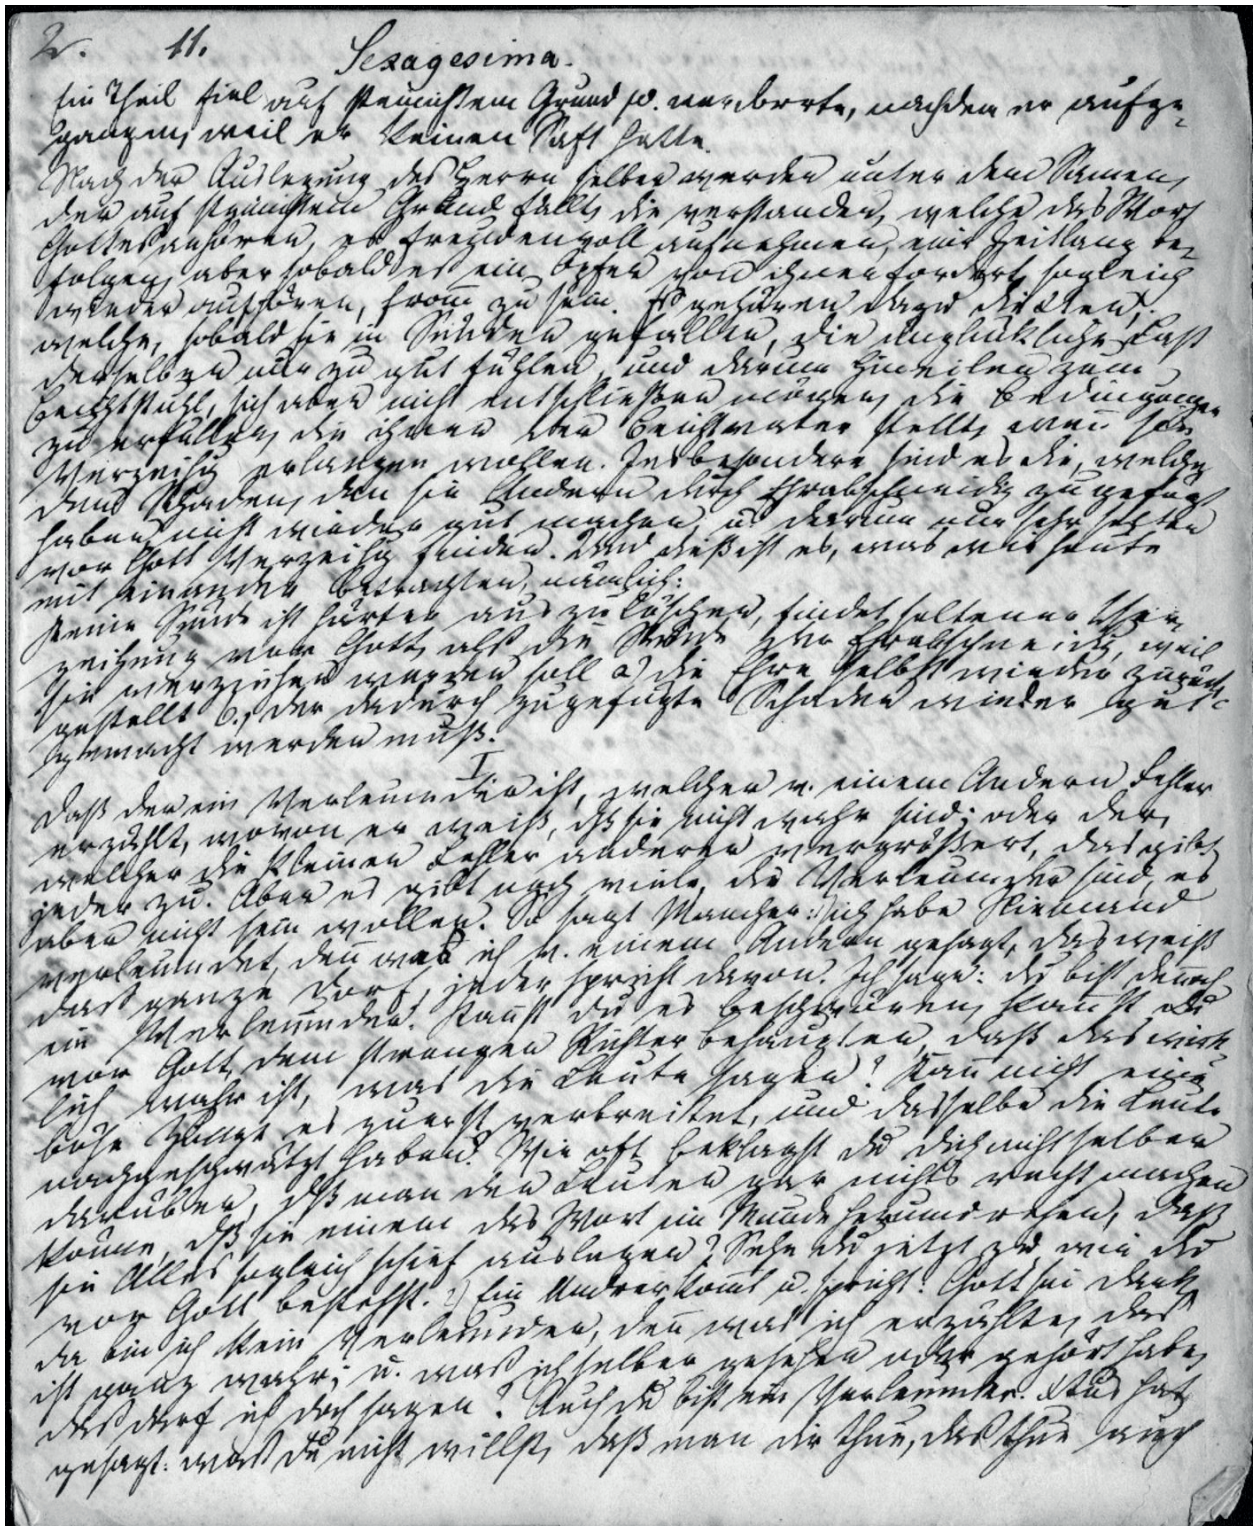 2. 11. Sexagesima.
Ein Theil fiel auf steinichtem Grund u. verdorrte, nachdem er aufge-
gangen, weil er keinen Saft hatte.
Nach der Auslegung des Herrn selber werden unter dem Samen,
der auf steinichtem Grund fällt, die verstanden, welche das Wort
Gottes anhören, es freudenvoll aufnehmen, eine Zeitlang be-
folgen, aber sobald es ein Opfer von ihnen fordert, sogleich
wieder aufhören, from̄ zu sein. Es gehören dazu die
welche, sobald sie in Sünden gefallen, die unglükliche Last
derselben nur zu gut fühlen, und darum hineilen zum
Beichtstuhl, sich aber nicht entschließen mögen, die Bedingungen
zu erfüllen, die ihnen der Beichtvater stellt, wen̄ sie
Verzeihg erlangen wollen. Insbesondere sind es die, welche
den Schaden, den sie Andern durch Ehrabschneidg zugefügt
haben, nicht wieder gut machen, u. darum nur sehr selten
vor Gott Verzeihg finden. Und dieß ist es, was wir heute
mit einander betrachten, nämlich:
Keine Sünde ist härter auszulöschen, findet seltener Ver-
zeihung vor Gott, als die Sünde der Ehrabschneidg, weil
sie verziehen werden soll a) die Ehre selbst wieder zurück
gestellt b., der dadurch zugefügte Schaden wieder gut
gemacht werden muß.
I
Daß der ein Verleumder ist, welcher v. einem Andern Fehler
erzählt, wovon er weiß, dß sie nicht wahr sind; oder der,
welcher die kleinen Fehler anderer vergrößert, das gibt
jeder zu. Aber es gibt noch viele, die Verleumder sind, es
aber nicht sein wollen. So sagt Mancher: ich habe Niemand
verleumdet, den̄ was ich v. einem Andern gesagt, das weiß
das ganze Dorf, jeder spricht davon. Ich sage: du bist den̄och
ein Verleumder. Kan̄st du es beschwören, kan̄st du
vor Gott dem strengen Richter behaupten, daß das wirk-
lich wahr ist, was die Leute sagen? Kan̄ nicht eine
böse Zunge es zuerst verbreitet, und dasselbe die Leute
nachgeschwätzt haben? Wie oft beklagst du dich nicht selber
darüber, dß man den Leuten gar nichts recht machen
könne, dß sie einem das Wort im Munde herumdrehen, daß
sie Alles sogleich schief auslegen? Sehe du jetzt zu, wie du
vor Gott bestehst. Ein Andrer kom̄t u. spricht: Gott sei Dank,
da bin ich kein Verleumder, den̄ was ich erzählte, das
ist ganz wahr; u. was ich selber gesehen oder gehört habe,
das darf ich doch sagen? Auch du bist ein Verleumder. hat
gesagt: was du nicht willst, daß man dir thue, das thue auch